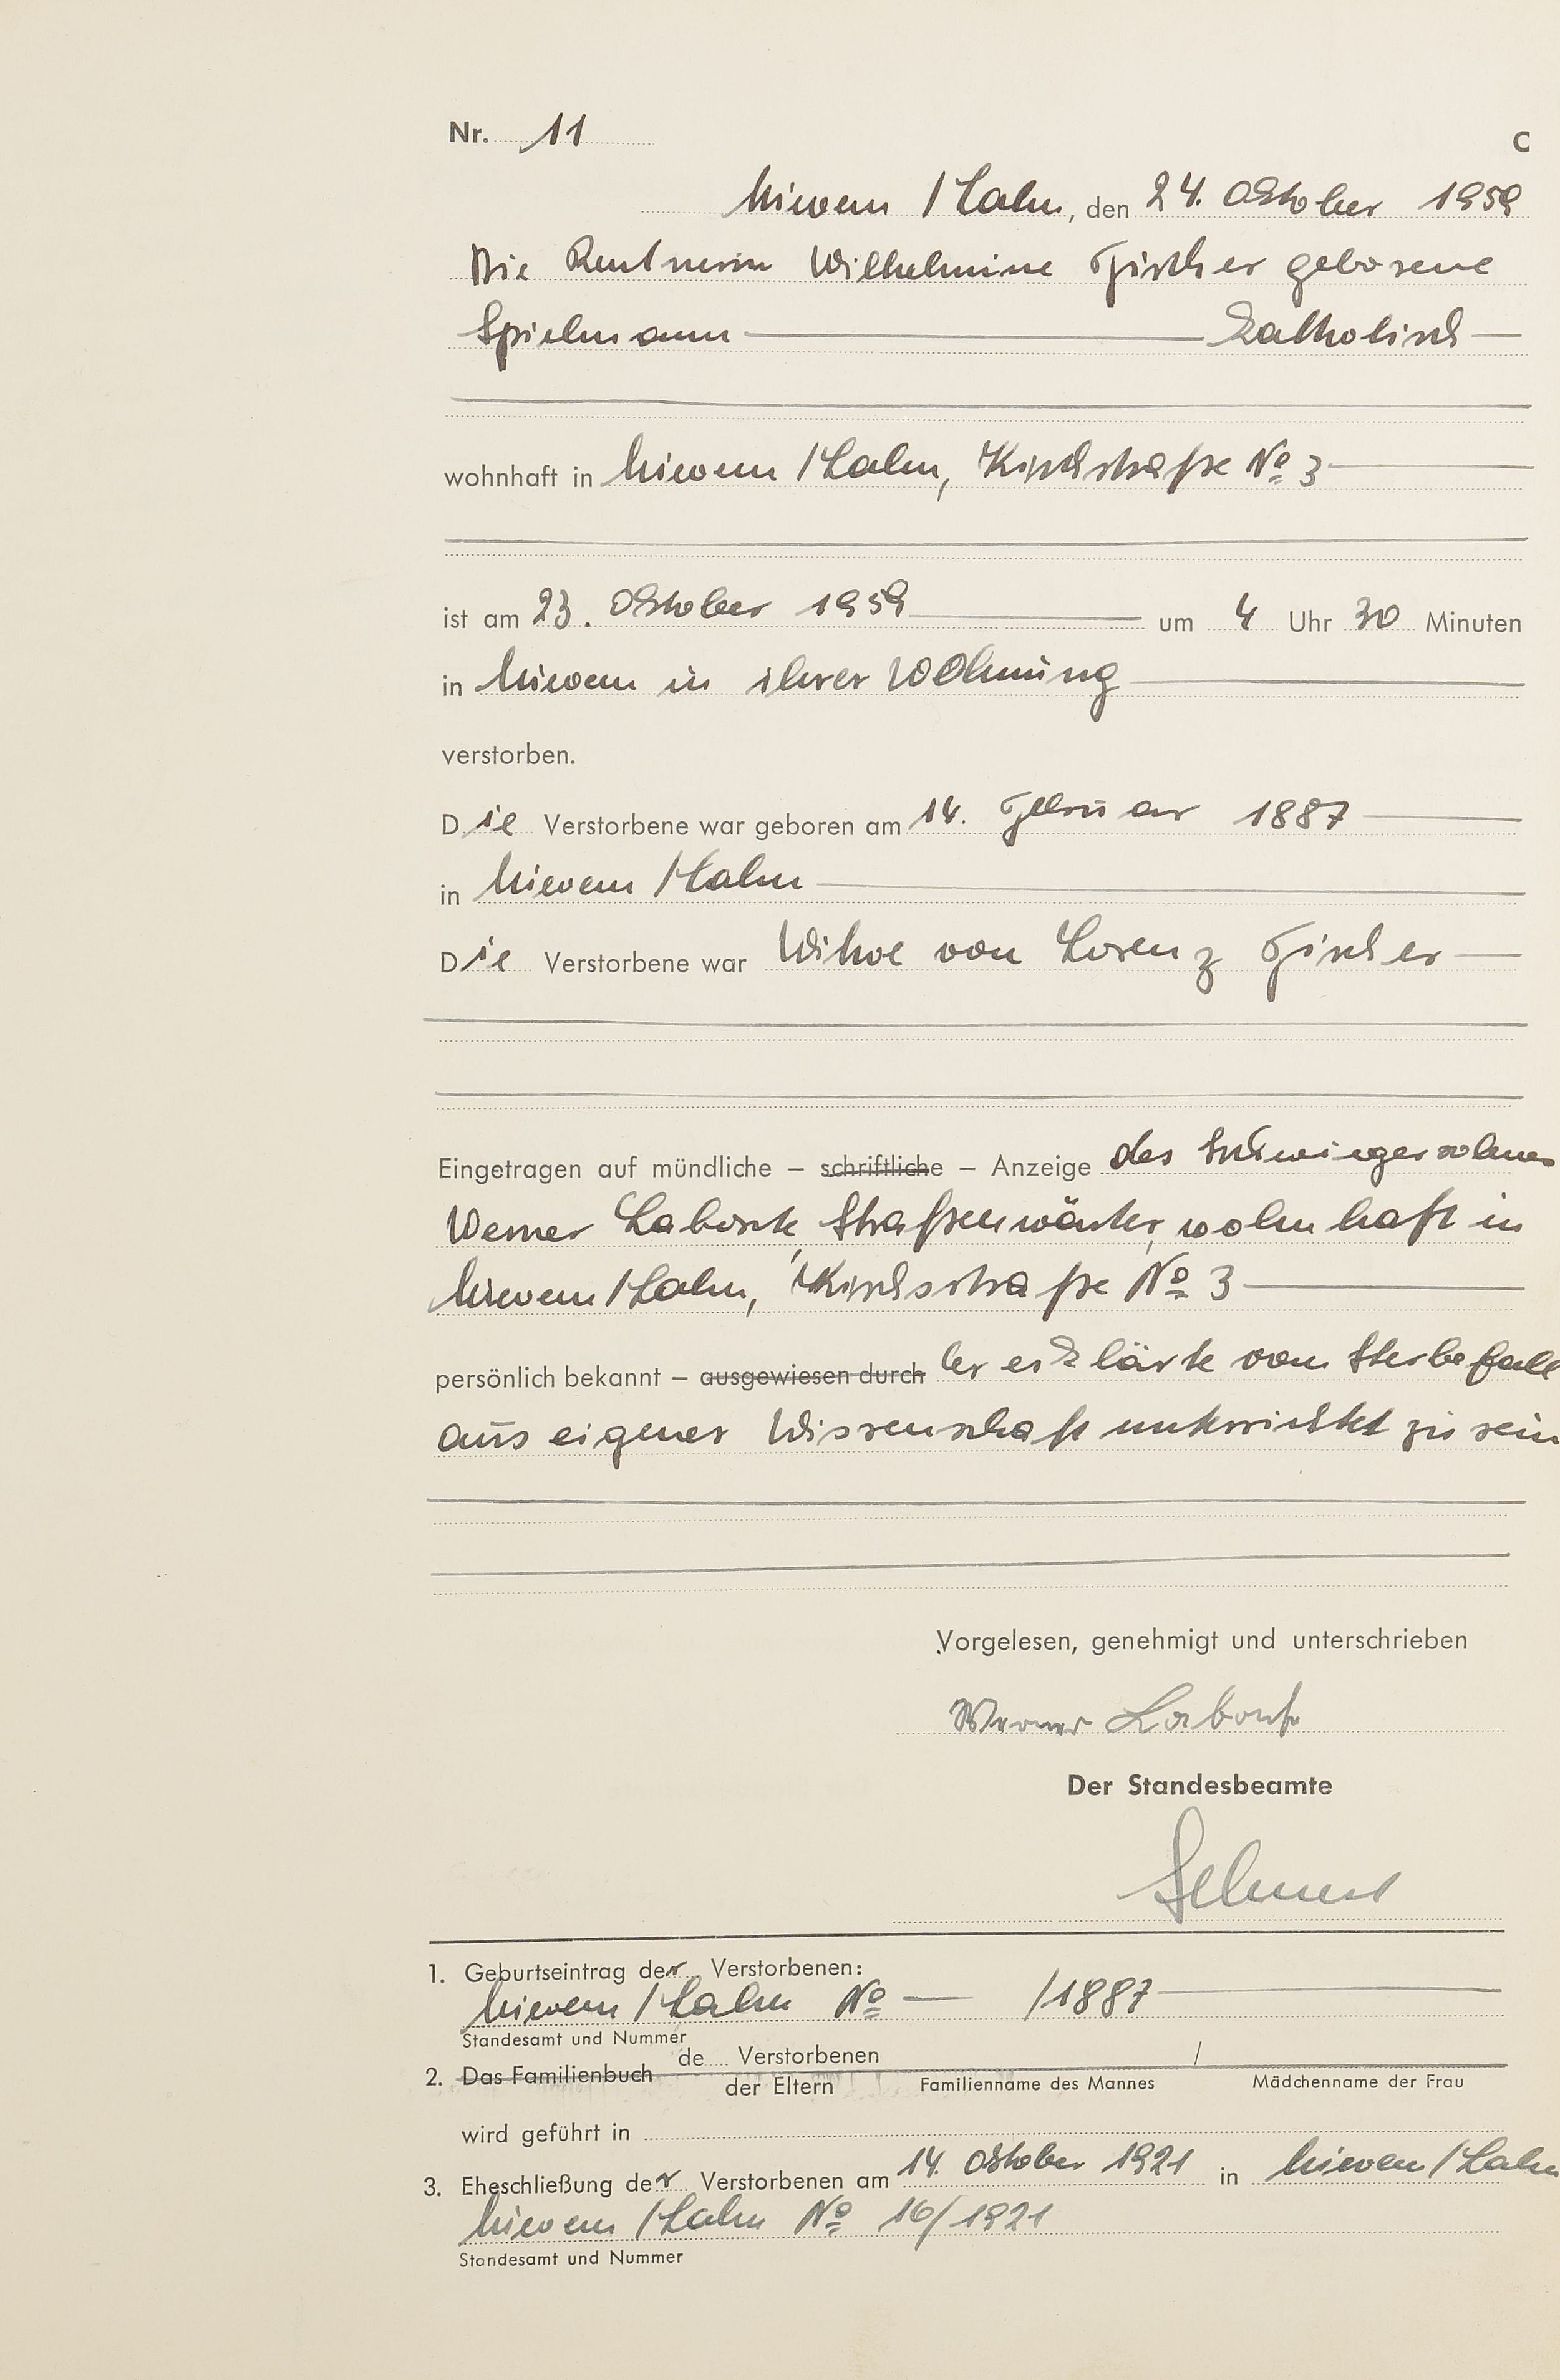 Nr. 11
C
Nievern / Lahn, den 24. Oktober 1959
Die Rentnerin Wilhelmine Fischer geborene
Spielmann — katholisch —
wohnhaft in Nievern / Lahn, Kirchstraße No 3
ist am 23. Oktober 1959 — um 4 Uhr 30 Minuten
in Nievern in ihrer Wohnung
verstorben.
Die Verstorbene war geboren am 14. Februar 1887
in Nievern / Lahn
Die Verstorbene war Witwe von Lorenz Fischer
Eingetragen auf mündliche – schriftliche – Anzeige des Schwiegersohnes
Werner Laborte, Straßenwärter, wohnhaft in
Nievern / Lahn, Kirchstraße No 3
persönlich bekannt – ausgewiesen durch Er erklärte vom Sterbefall
aus eigener Wissenschaft unterrichtet zu sein
Vorgelesen, genehmigt und unterschrieben
Werner Laborte
Der Standesbeamte
1. Geburtseintrag der Verstorbenen:
Nievern / Lahn No — /1887
Standesamt und Nummer
2. Das Familienbuch de Verstorbenen /
der Eltern Familienname des Mannes Mädchenname der Frau
wird geführt in
3. Eheschließung der Verstorbenen am 14. Oktober 1921 in Nievern / Lahn
Nievern / Lahn No 16/1921
Standesamt und Nummer